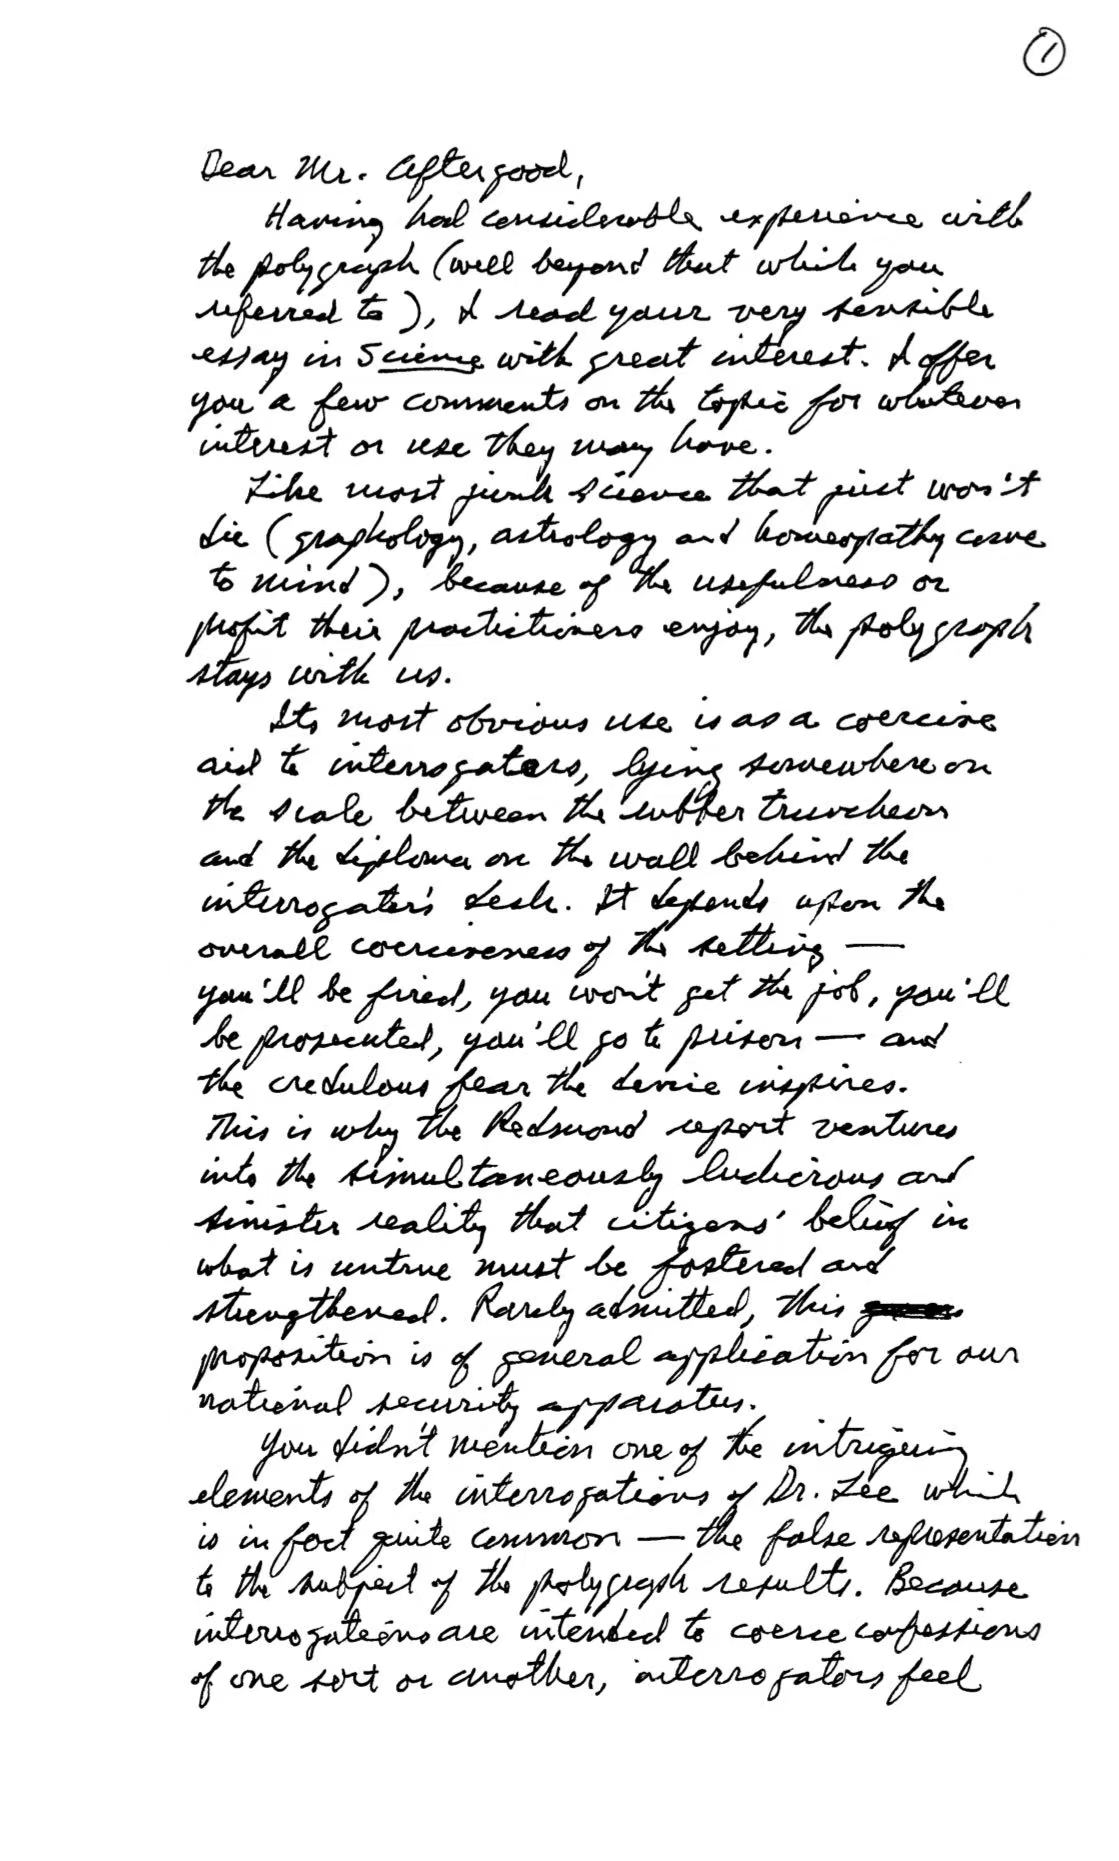 1
Dear Mr. Aftergood,
Having had considerable experience with
the polygraph (well beyond that which you
referred to), I read your very sensible
essay in Science with great interest. I offer
you a few comments on the topic for whatever
interest or use they may have.
Like most junk science that just won't
die (graphology, astrology and homeopathy come
to mind), because of the usefulness or
profit their practitioners enjoy, the polygraph
stays with us.
Its most obvious use is as a coercive
aid to interrogators, lying somewhere on
the scale between the rubber truncheon
and the diploma on the wall behind the
interrogator's desk. It depends upon the
overall coerciveness of the setting —
you'll be fired, you won't get the job, you'll
be prosecuted, you'll go to prison — and
the credulous fear the device inspires.
This is why the Redmond report ventures
into the simultaneously ludicrous and
sinister reality that citizens' belief in
what is untrue must be fostered and
strengthened. Rarely admitted, this
proposition is of general application for our
national security apparatus.
You didn't mention one of the intriguing
elements of the interrogations of Dr. Lee which
is in fact quite common — the false representation
to the subject of the polygraph results. Because
interrogations are intended to coerce confessions
of one sort or another, interrogators feel